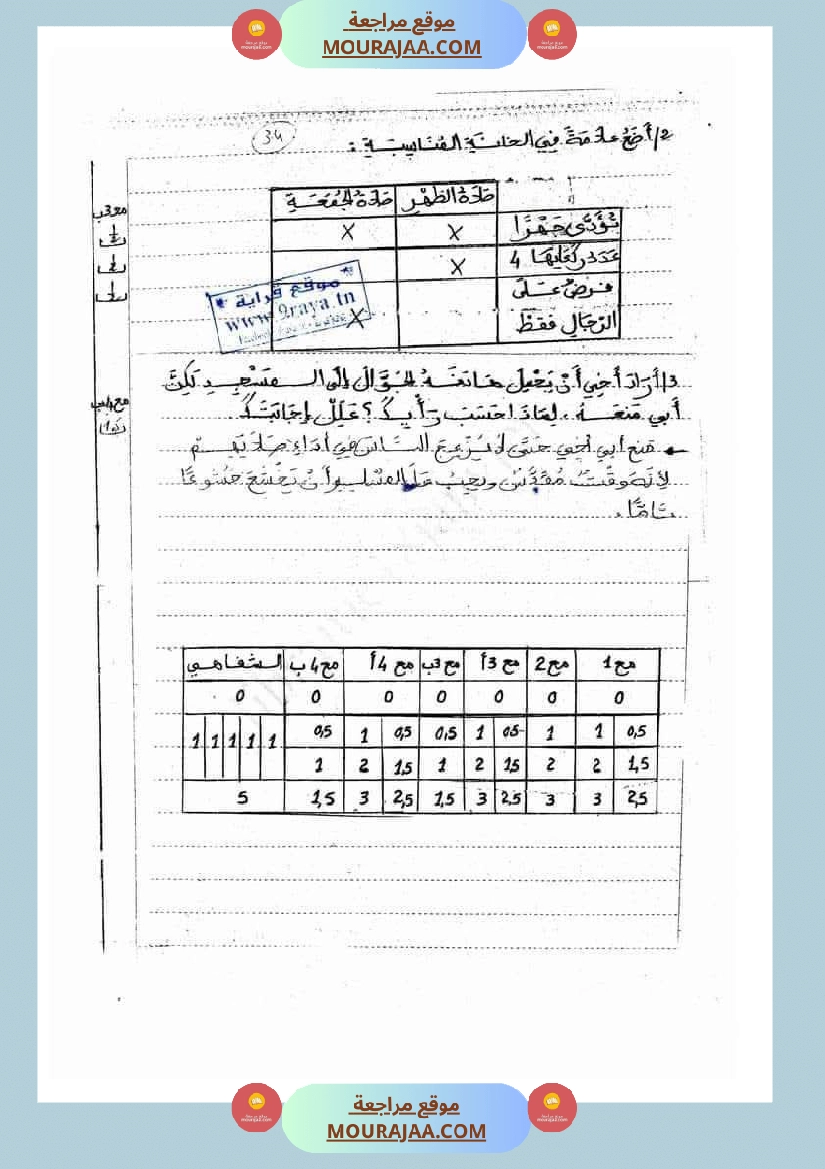 موقع مراجعة
MOURAJAA.COM
34
2/ أَضَعُ علامَةً فِي الخانَةِ المُنَاسِبَةِ :
صَلَاةُ الظهْرِ صَلَاةُ الجُمُعَةِ
تُؤَدَّى جَهْرًا X X
عَدَدُ رَكَعَاتِهَا 4 X
فَرْضٌ عَلَى الرّجَالِ فقطْ X
موقع قراية
www.9raya.tn
مع3ب
مع4ب
3/ أَرَادَ أَخِي أَنْ يَحْمِلَ هَاتفَهُ الجَوّالَ إِلَى المَسْجِدِ لَكِنَّ
أَبِي مَنَعَهُ. لِمَاذَا حَسَبَ رَأْيِكَ؟ عَلِّلْ إِجَابَتَكَ
منع أبي أخي حتّى لا يُزعِجَ النّاسَ في أداءِ صلاتِهم
لأنّه وقتٌ مُقدّسٌ ويجبُ على المسلم أنْ يَخْشَعَ خُشوعًا
تامًّا.
مع1 مع2 مع3أ مع3ب مع4أ مع4ب الشفاهي
0 0 0 0 0 0 0
0,5 1 1 0,5 1 0,5 0,5 1 0,5 1 1 1 1 1
1,5 2 2 1,5 2 1 1,5 2 1
2,5 3 3 2,5 3 1,5 2,5 3 1,5 5
موقع مراجعة
MOURAJAA.COM